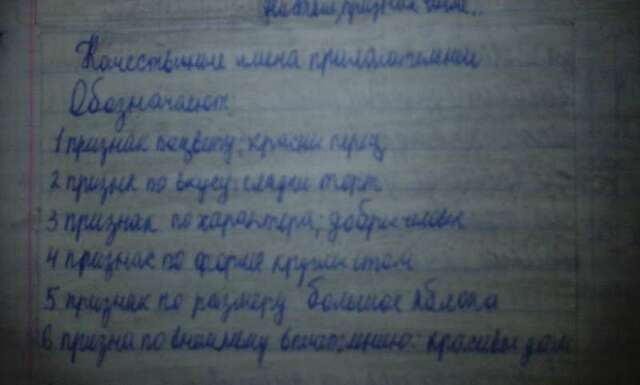 признак
Качествщине имена прилагателние
Обозначаеют,
1 признак по цвету; красни перец
2 признк по вкусу: сладки торт
3 признак по характера; добри человек
4 признас по форме кругли стол
5. признак по размеру большое яблока
6. призна по внешнему впичатлению: красивы дом